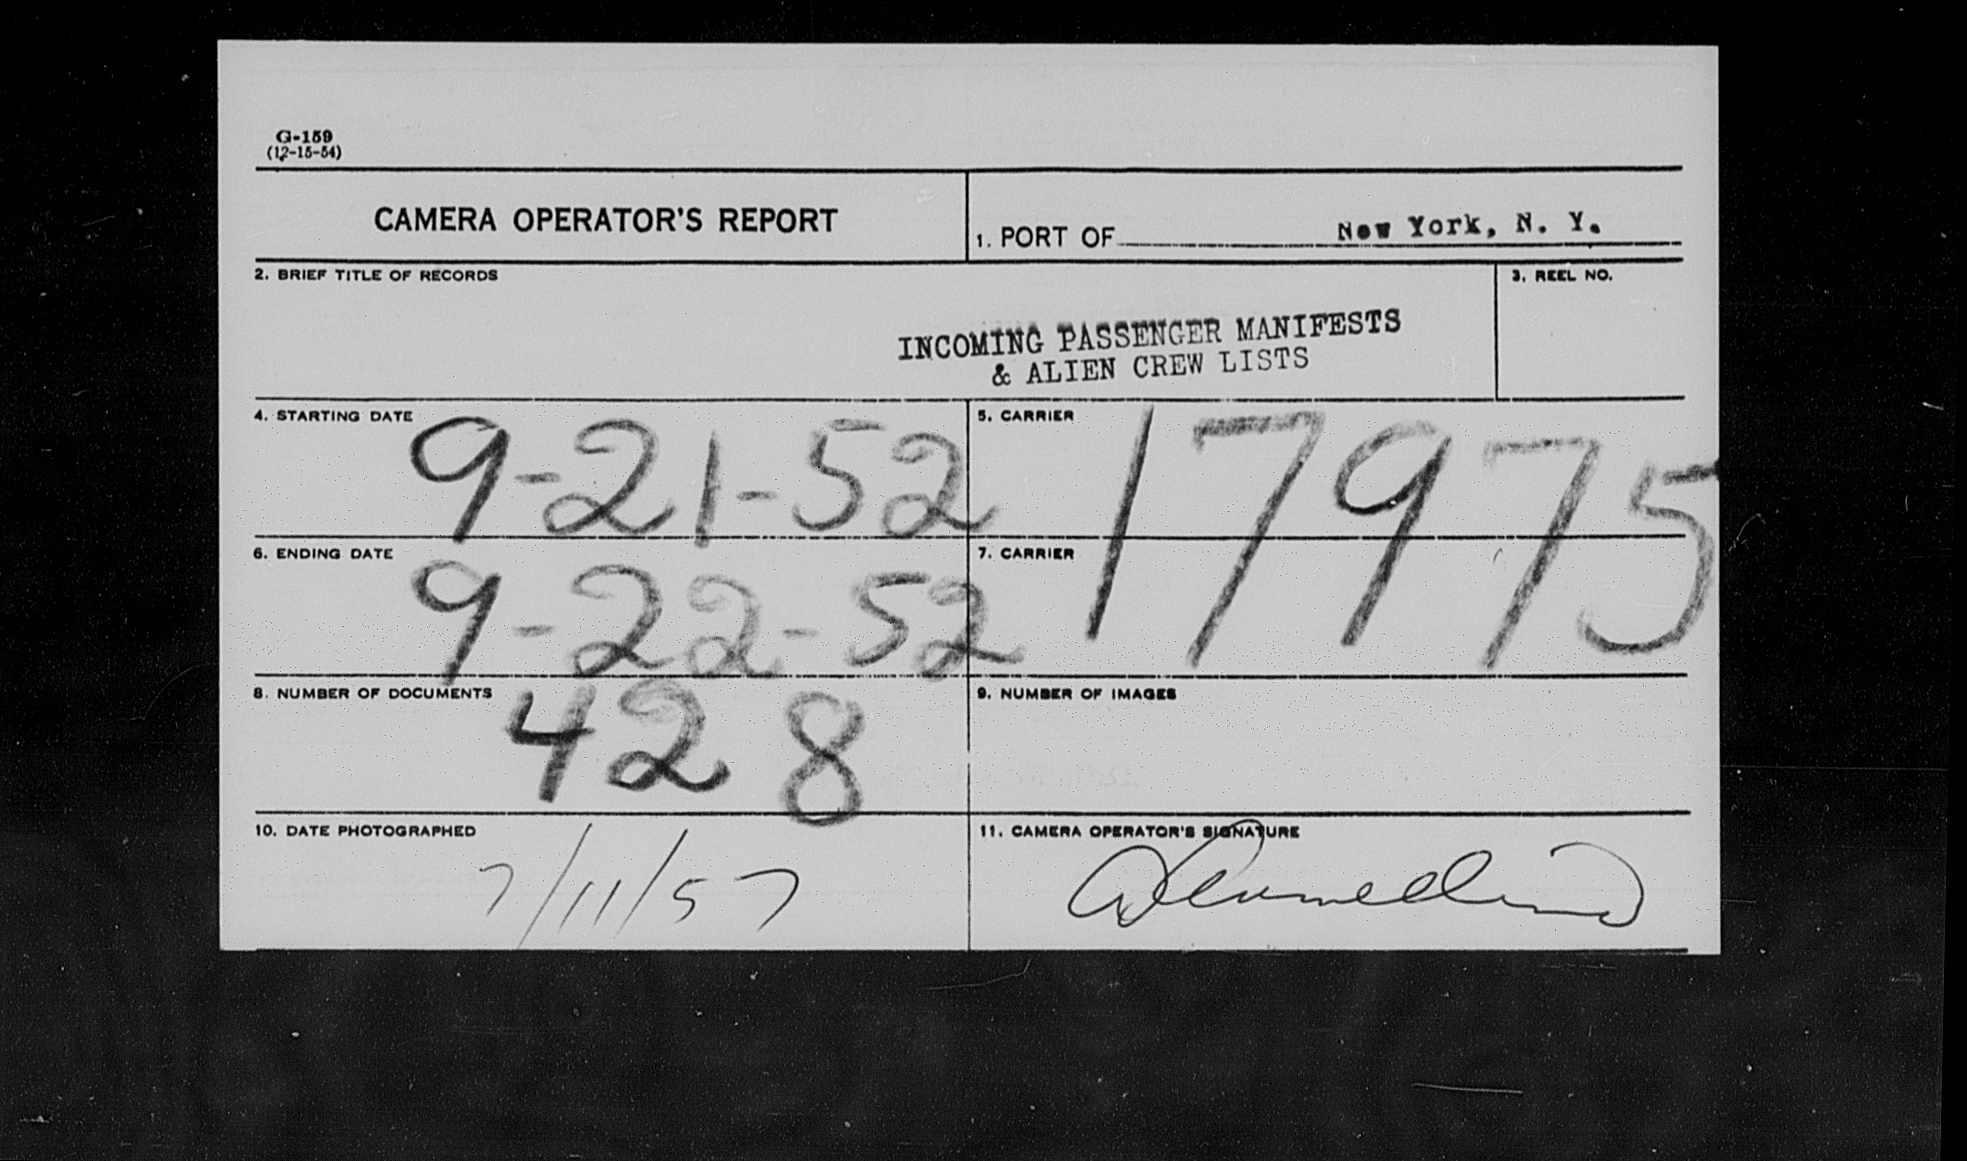 G-159
(12-15-54)
CAMERA OPERATOR'S REPORT
1. PORT OF New York, N. Y.
2. BRIEF TITLE OF RECORDS
3. REEL NO.
INCOMING PASSENGER MANIFESTS
& ALIEN CREW LISTS
4. STARTING DATE 9-21-52
5. CARRIER
17975
6. ENDING DATE 9-22-52
7. CARRIER
8. NUMBER OF DOCUMENTS 428
9. NUMBER OF IMAGES
10. DATE PHOTOGRAPHED
7/11/57
11. CAMERA OPERATOR'S SIGNATURE